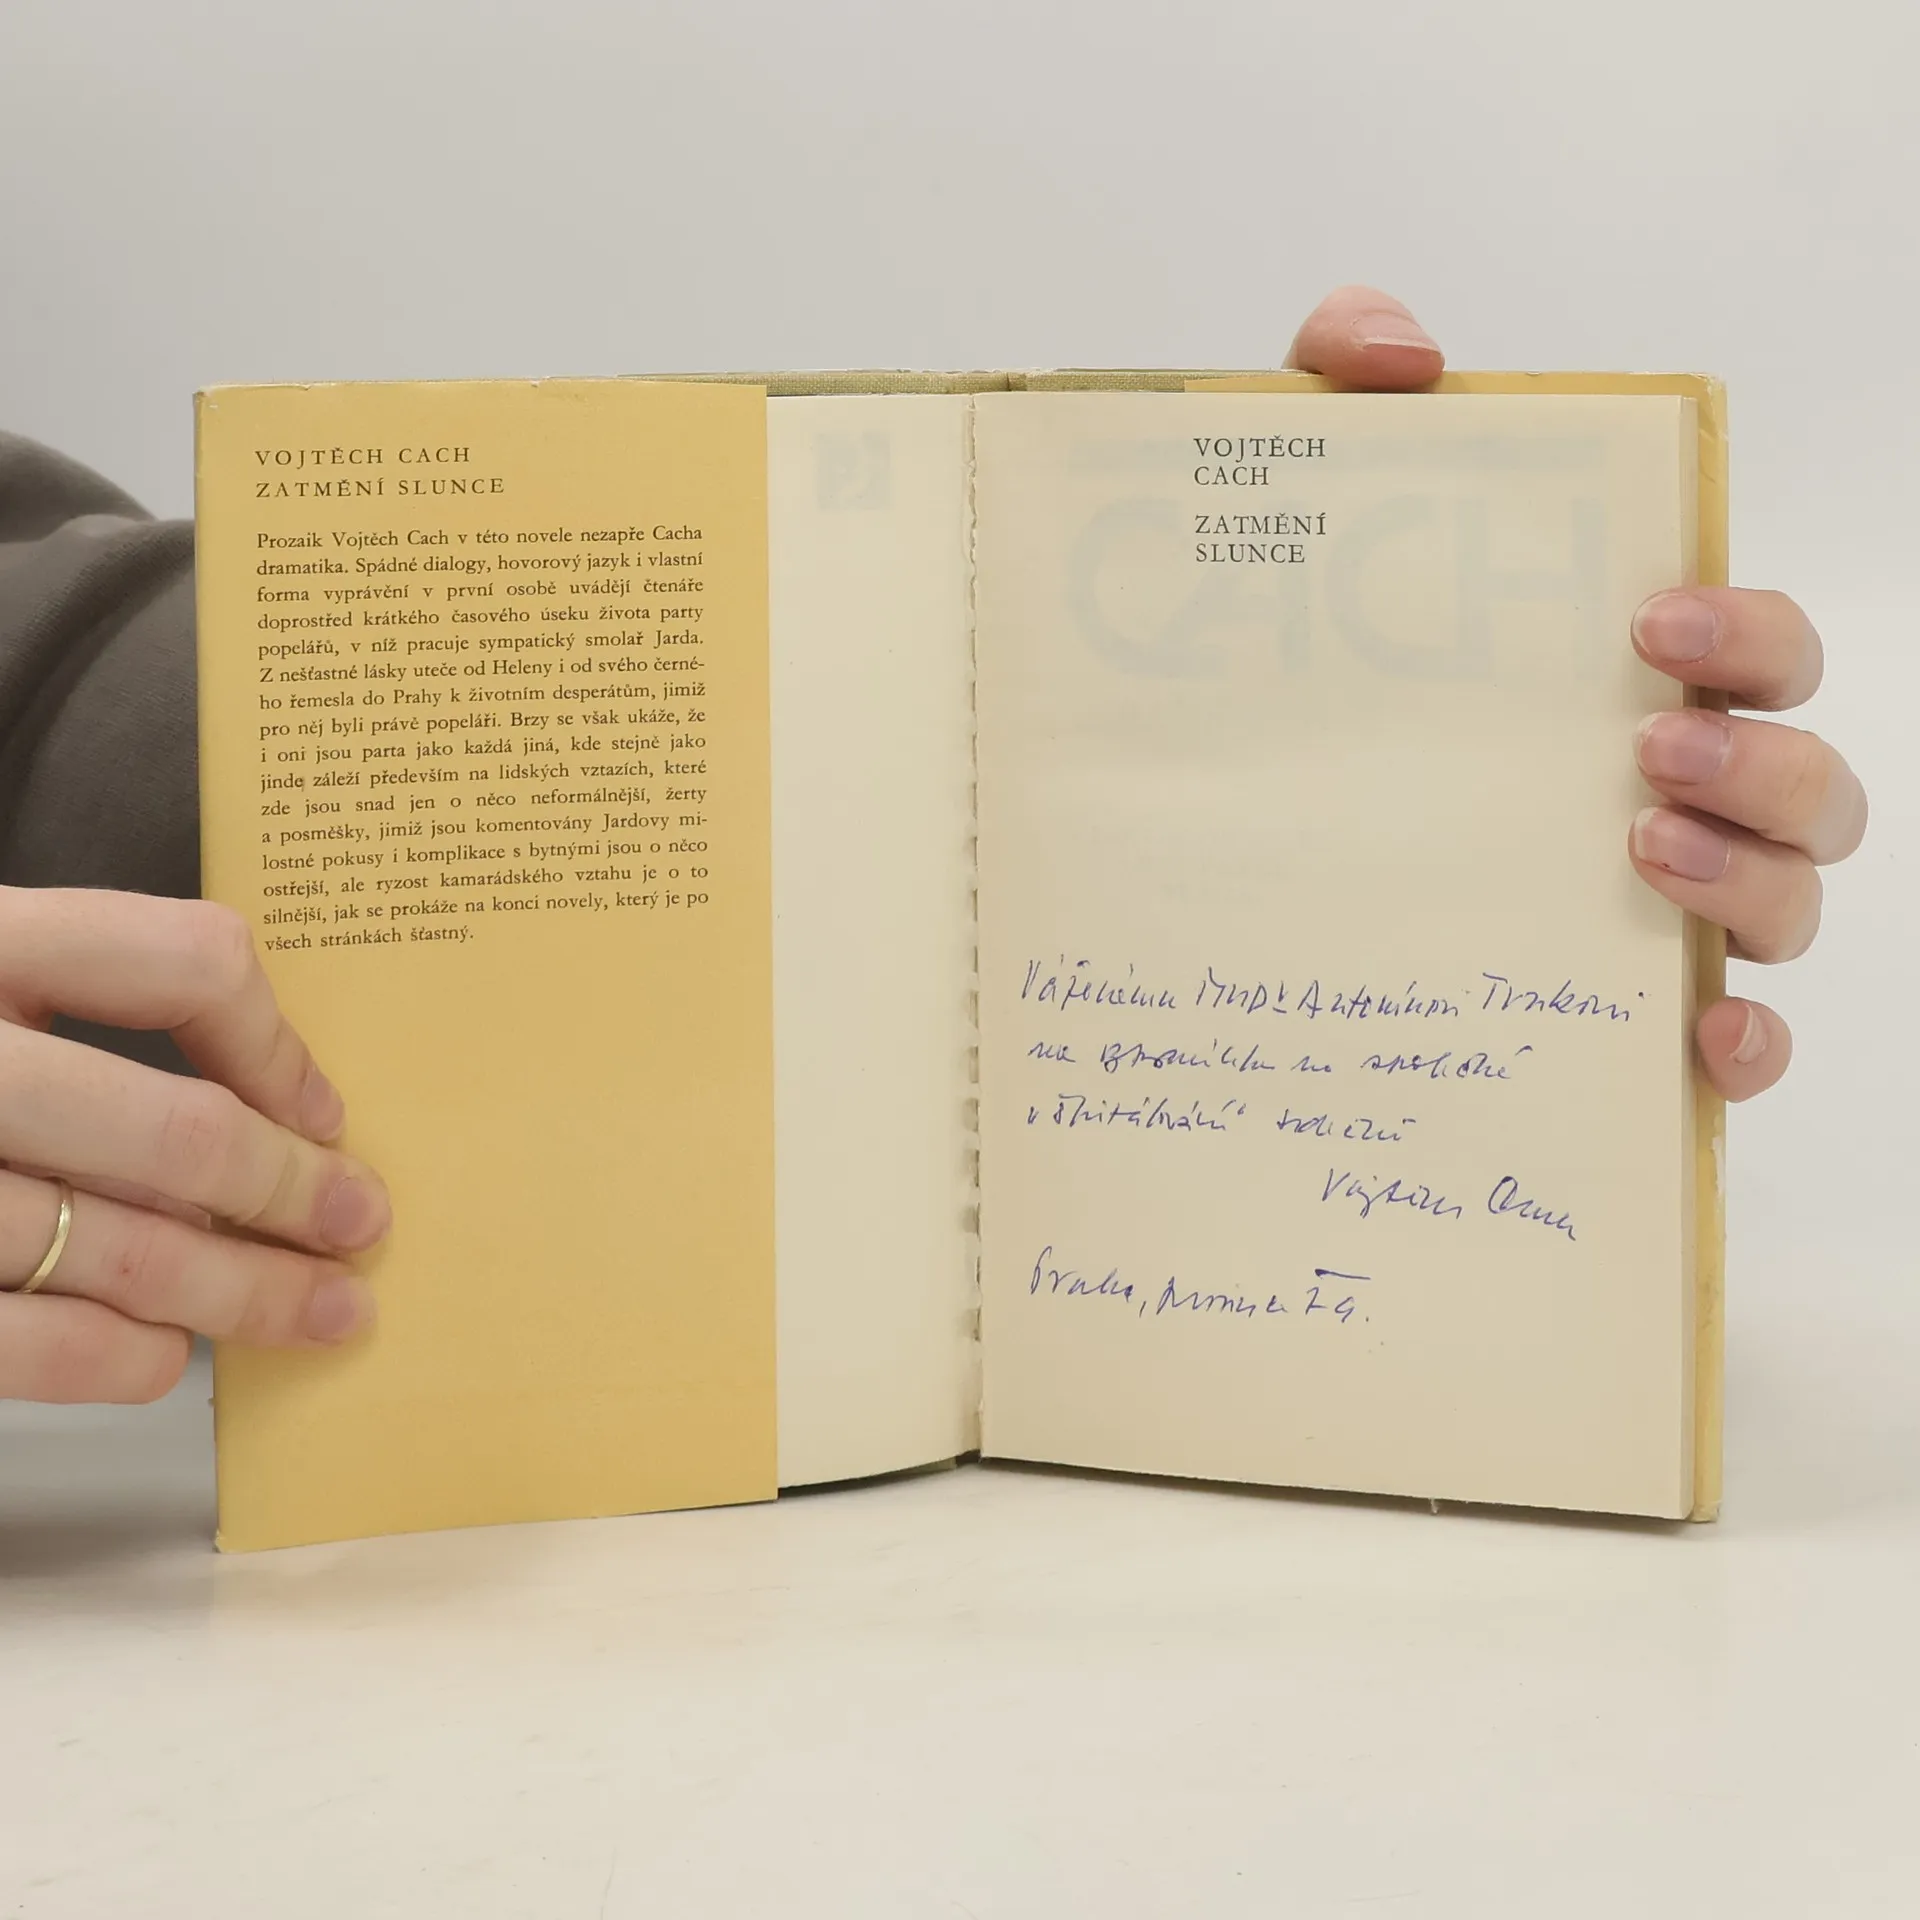 VOJTĚCH CACH
ZATMĚNÍ SLUNCE
Prozaik Vojtěch Cach v této novele nezapře Cacha
dramatika. Spádné dialogy, hovorový jazyk i vlastní
forma vyprávění v první osobě uvádějí čtenáře
doprostřed krátkého časového úseku života party
popelářů, v níž pracuje sympatický smolař Jarda.
Z nešťastné lásky uteče od Heleny i od svého černé-
ho řemesla do Prahy k životním desperátům, jimiž
pro něj byli právě popeláři. Brzy se však ukáže, že
i oni jsou parta jako každá jiná, kde stejně jako
jinde záleží především na lidských vztazích, které
zde jsou snad jen o něco neformálnější, žerty
a posměšky, jimiž jsou komentovány Jardovy mi-
lostné pokusy i komplikace s bytnými jsou o něco
ostřejší, ale ryzost kamarádského vztahu je o to
silnější, jak se prokáže na konci novely, který je po
všech stránkách šťastný.
VOJTĚCH
CACH
ZATMĚNÍ
SLUNCE
Váženému MUDr Antonínovi
na vzpomínku na společné
"špitálování" srdečně
Vojtěch Cach
Praha, prosinec